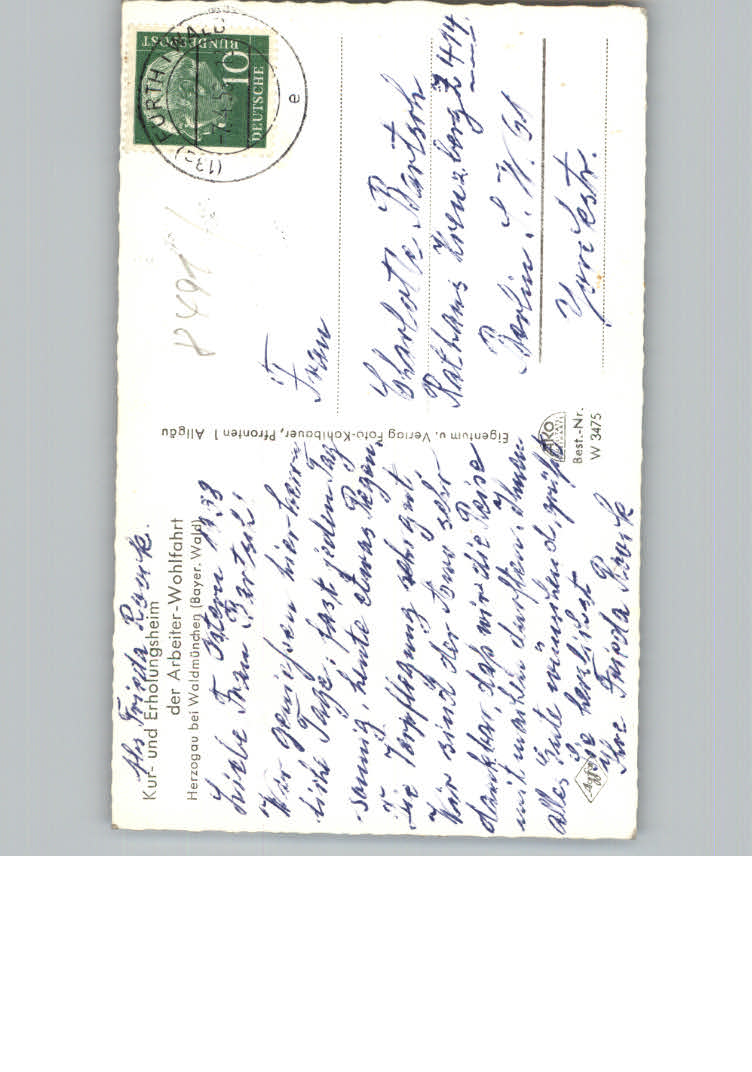 Abs. Frieda
Kur- und Erholungsheim
der Arbeiter-Wohlfahrt
Herzogau bei Waldmünchen (Bayer. Wald)
Ostern 1958
Liebe Frau Bartsch!
Wir genießen hier herr-
liche Tage, fast jeden Tag
sonnig, heute etwas Regen.
Die Verpflegung sehr gut,
Wir sind der sehr
dankbar, daß wir die Reise
mitmachen durften. Ihnen
alles Gute wünschend, grüßt
Sie herzlichst
Ihre Frieda
Agfa
Eigentum u. Verlag Foto-Kohlbauer, Pfronten 1 Allgäu
Best.-Nr.
W 3475
DEUTSCHE
BUNDESPOST
10
FURTH I WALD
(13a)
e
8491
Frau
Charlotte Bartsch
Rathaus Kreuzberg Z 414
Berlin S.W. 61
Yorckstr.